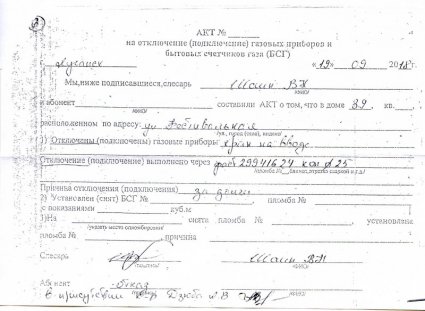 АКТ №
на отключение (подключение) газовых приборов и
бытовых счетчиков газа (БСГ)
г. Луганск «19» 09 2018г.
Мы, ниже подписавшиеся, слесарь Шалин ВП
и абонент составили АКТ о том, что в доме 39 кв.
расположенном по адресу: ул Фестивальная
(ул., город (село), индекс)
1) Отключены (подключены) газовые приборы кран на вводе
Отключение (подключение) выполнено через 29941624 25
Причина отключения (подключения) за долги
2) Установлен (снят) БСГ № пломба №
с показаниями куб.м
3) На снята пломба №, установлена
(указать место опломбировки)
пломба №, причина
Слесарь Шалин ВП
Абонент отказ
в присутствии Дзюба В